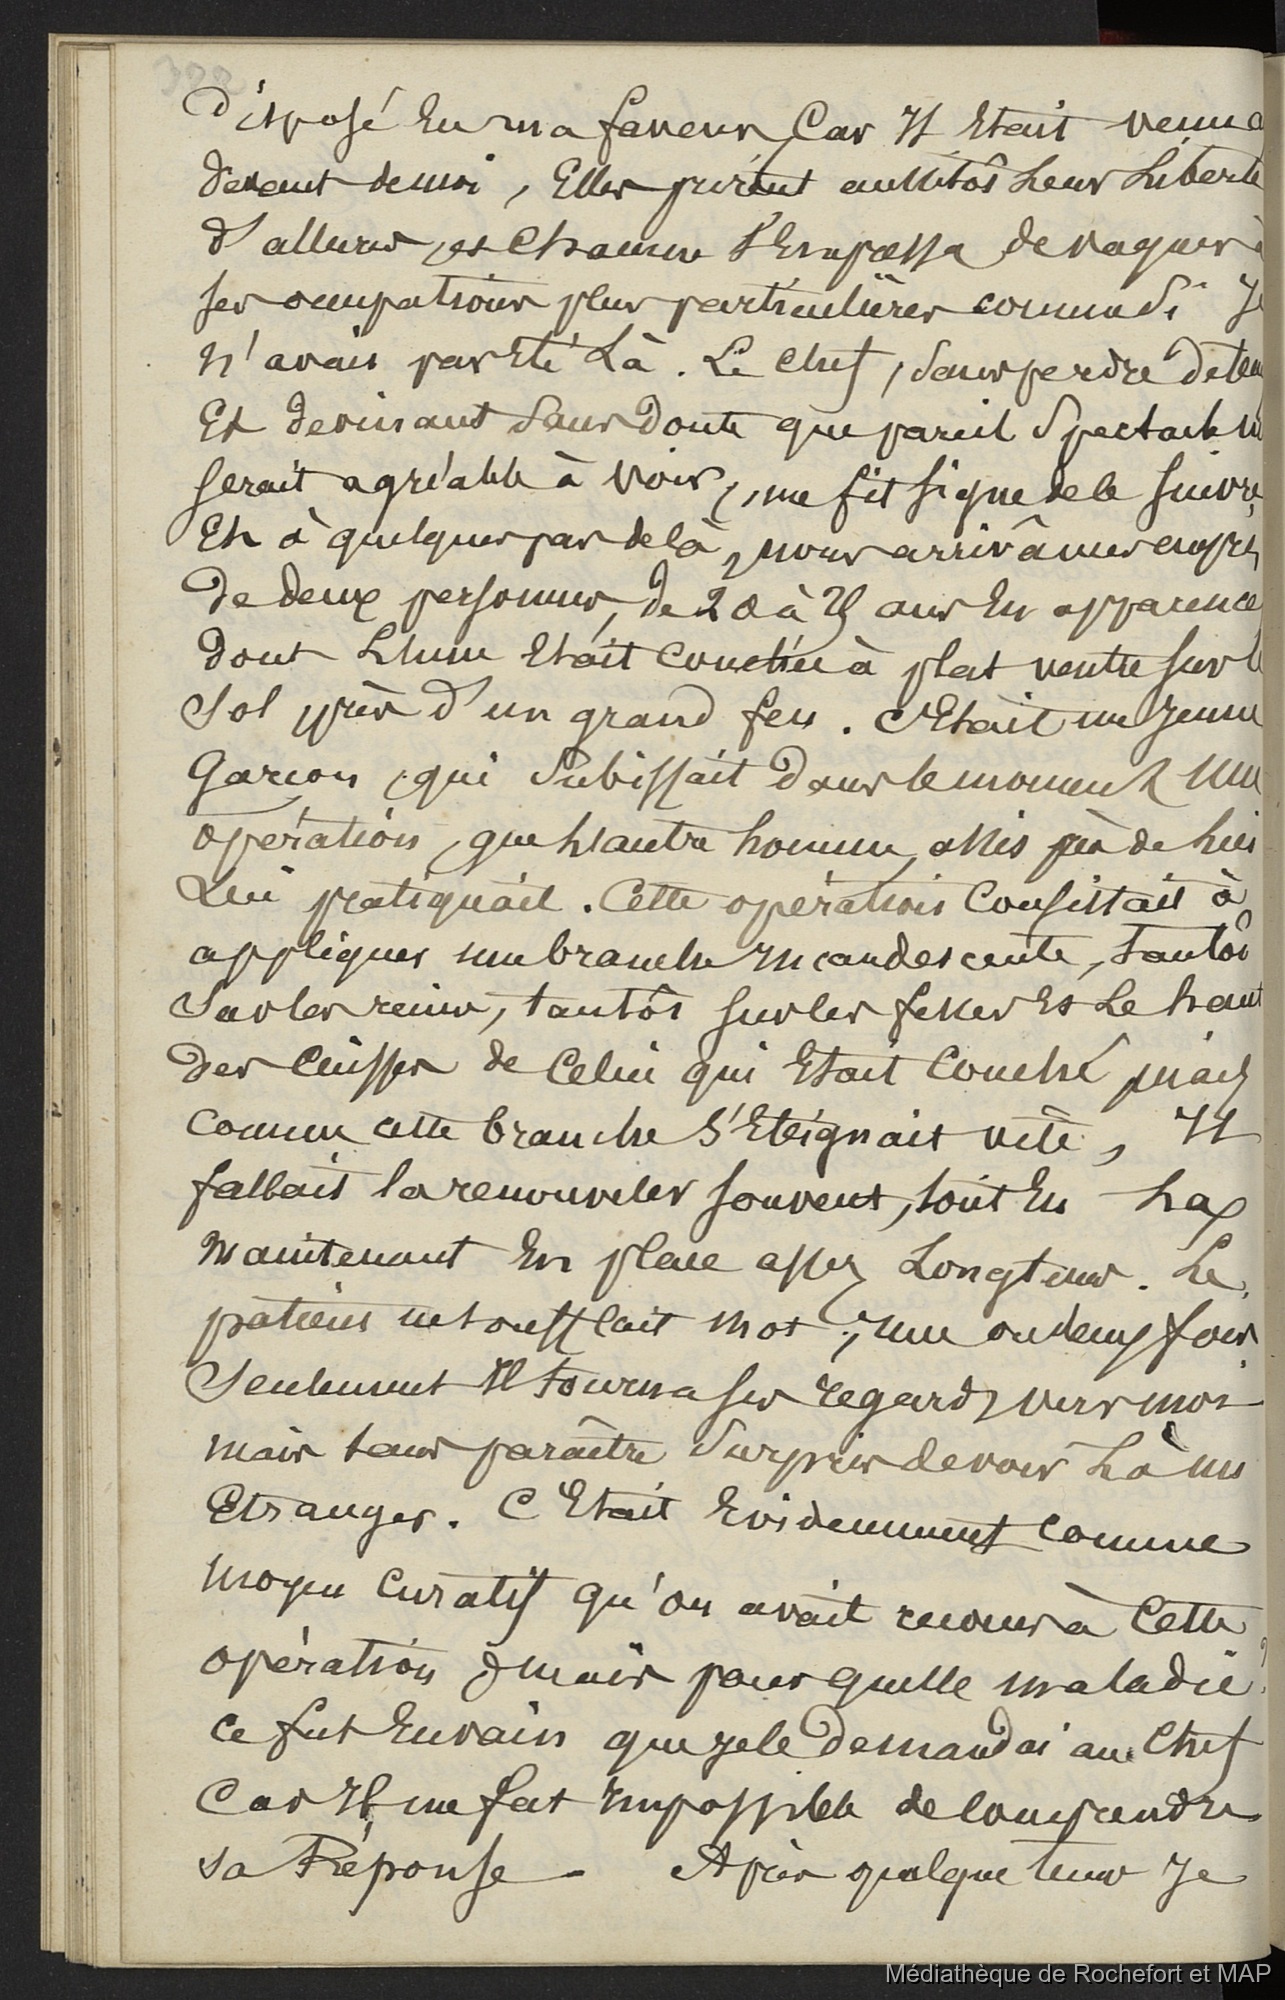 322
Disposé En ma faveur, Car Il Etait venu a
devant de moi, Elles prirent aussitôt Leur Liberté
d'allures, et Chacune s'Empressa de vaquer à
ses occupations plus particulières comme Si Je
N'avais pas Eté Là. Le chef, Sans perdre de tem
Et devinant Sans Doute que pareil Spectacle m
serait agréable à Voir, me fit signe de le suivre,
Et à quelques pas delà, nous arrivâmes auprès
De deux personnes, de 20 à 25 ans En apparence,
dont L'une Etait couchée à plat ventre sur le
Sol près d'un grand feu. C'Etait un Jeune
Garçon, qui Subissait Dans le moment Une
opération, que L'autre homme, assis près de Lui
Lui pratiquait. Cette opération Consistait à
appliquer une branche Incandescente, tantôt
Sur les reins, tantôt sur les fesses Et Le haut
Des Cuisses de Celui qui Etait Couché mais
Comme cette branche S'Eteignait vite, Il
fallait la renouveler souvent, tout En La
Maintenant En place assez Longtems. Le
patient ne soufflait mot; une ou deux fois
Seulement Il tourna ses regards vers moi
mais sans paraître Surpris de voir Là un
Etranger. C'Etait Evidemment comme
moyen Curatif qu'on avait recours à Cette
opération; mais pour quelle maladie?
Ce fut Envain que Je le Demandai au Chef
Car Il me fut Impossible de Comprendre
sa Réponse – Après quelque tems Je
Médiathèque de Rochefort et MAP